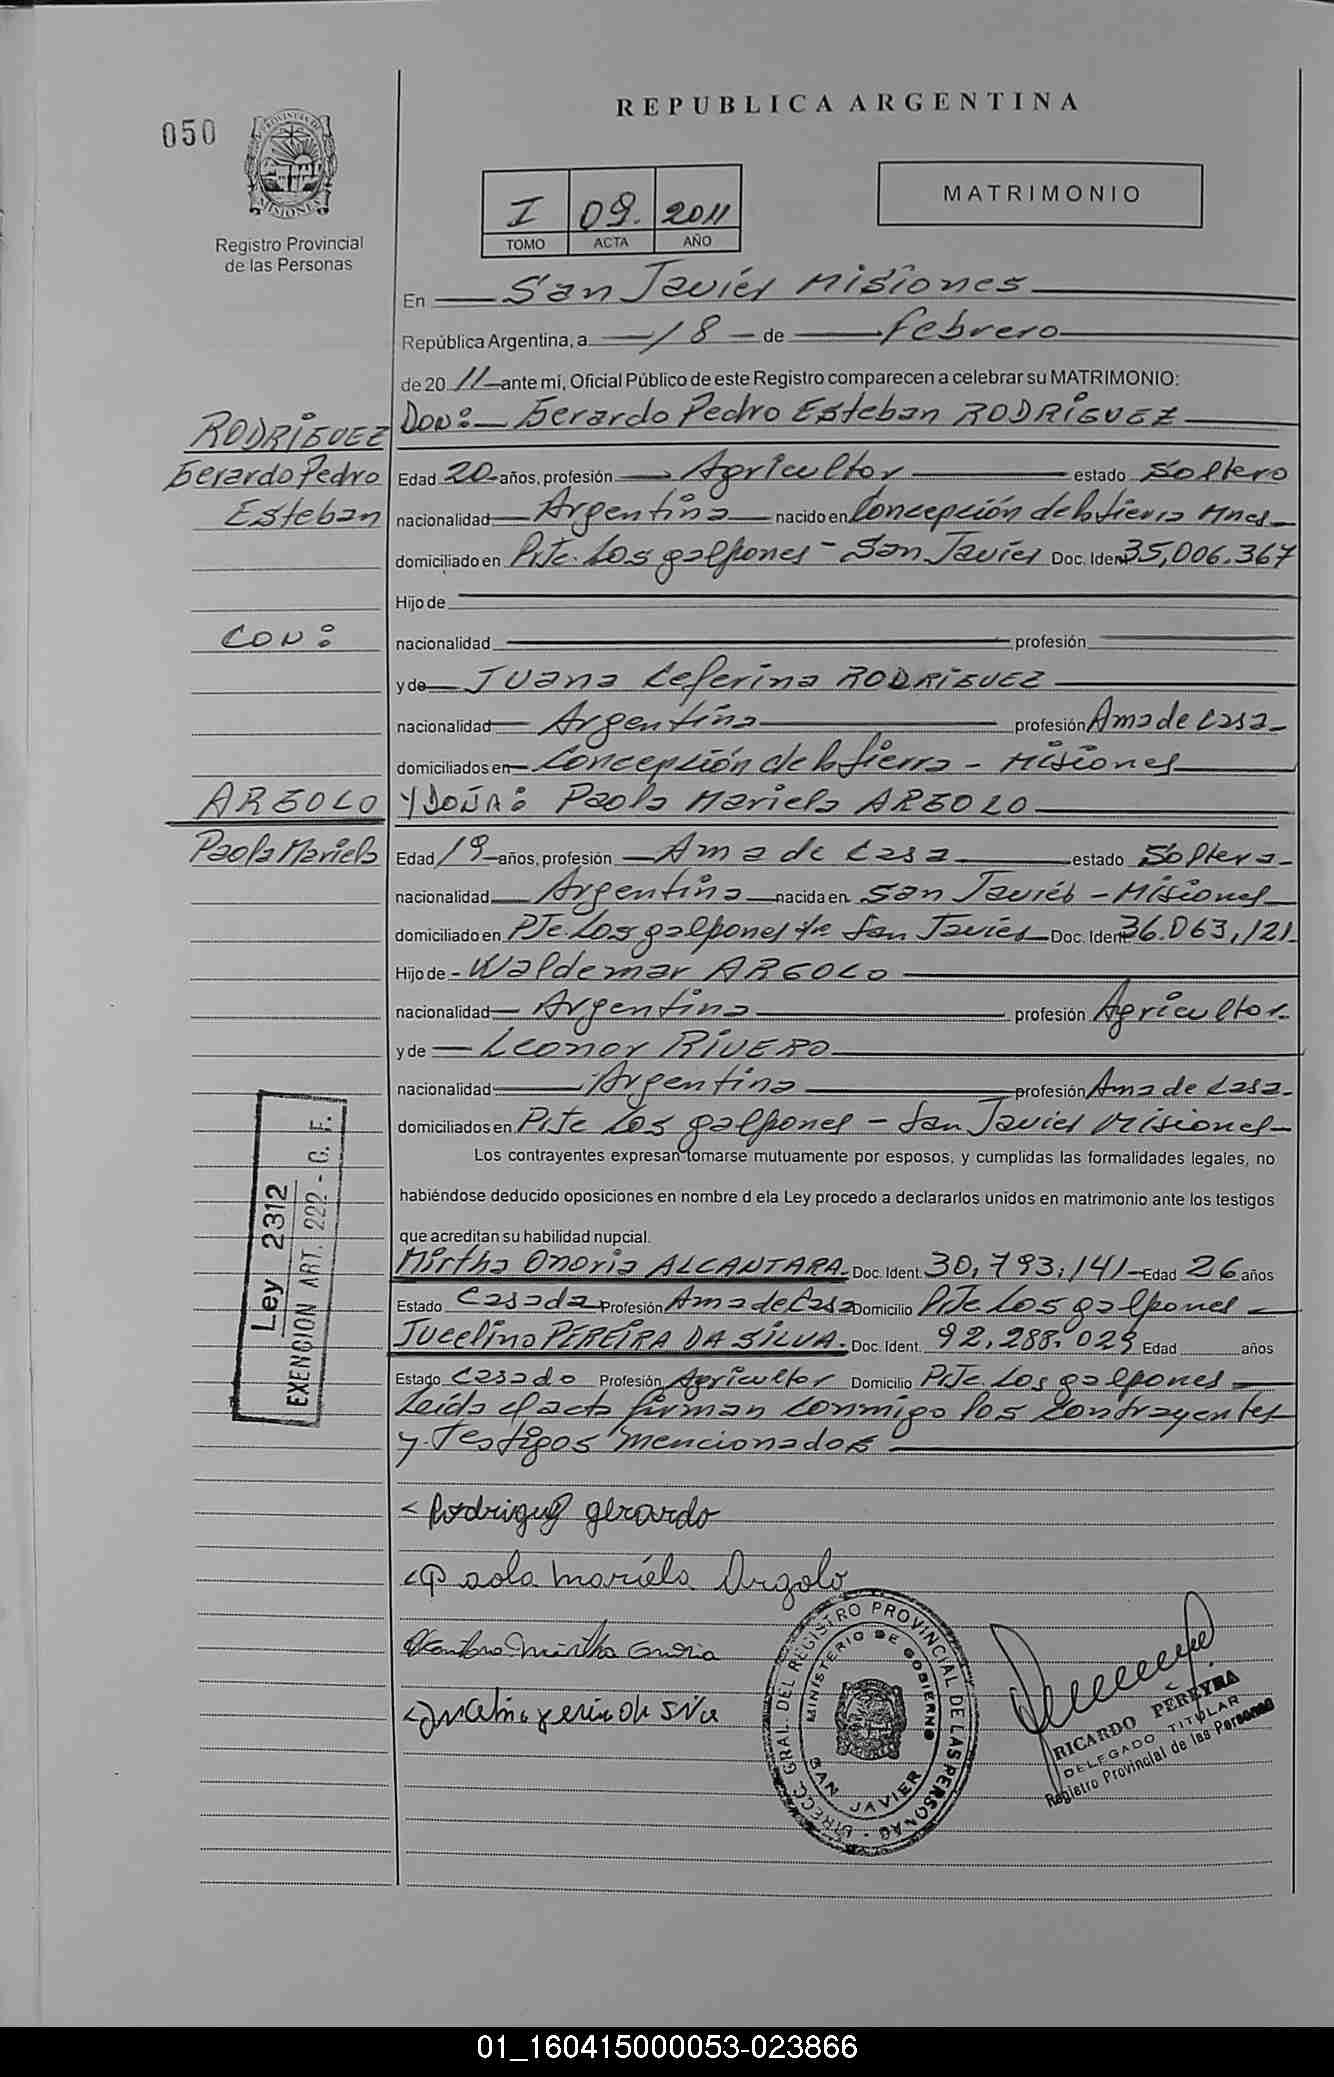 REPUBLICA ARGENTINA
050
PROVINCIA DE MISIONES
Registro Provincial
de las Personas
I 09. 2011
TOMO ACTA AÑO
MATRIMONIO
En San Javier Misiones
República Argentina, a 18 de febrero
de 20 11 ante mi, Oficial Público de este Registro comparecen a celebrar su MATRIMONIO:
RODRIGUEZ
Gerardo Pedro
Esteban
CON:
ARGOLO
Paola Mariela
DON: Gerardo Pedro Esteban RODRIGUEZ
Edad 20 años, profesión Agricultor estado Soltero
nacionalidad Argentina nacido en Concepción de la Sierra Mnes
domiciliado en Pje. Los galpones - San Javier Doc. Ident 35,006.367
Hijo de
nacionalidad profesión
y de Juana Ceferina RODRIGUEZ
nacionalidad Argentina profesión Ama de Casa
domiciliados en Concepción de la Sierra - Misiones
Y DOÑA: Paola Mariela ARGOLO
Edad 19 años, profesión Ama de Casa estado Soltera
nacionalidad Argentina nacida en San Javier - Misiones
domiciliado en Pje. Los galpones San Javier Doc. Ident 36.063,121
Hijo de - Waldemar ARGOLO
nacionalidad Argentina profesión Agricultor
y de Leonor RIVERO
nacionalidad Argentina profesión Ama de Casa
domiciliados en Pje Los galpones - San Javier Misiones
Los contrayentes expresan tomarse mutuamente por esposos, y cumplidas las formalidades legales, no
habiéndose deducido oposiciones en nombre d ela Ley procedo a declararlos unidos en matrimonio ante los testigos
que acreditan su habilidad nupcial.
Mirtha Onoria ALCANTARA. Doc. Ident. 30,793,141 Edad 26 años
Estado Casada Profesión Ama de Casa Domicilio Pje Los galpones
Jucelino PEREIRA DA SILVA. Doc. Ident. 92,288,029 Edad años
Estado Casado Profesión Agricultor Domicilio Pje. Los galpones
Leída el acta firman conmigo los contrayentes
y testigos mencionados
Ley 2312
EXENCION ART. 222 - C. F.
Rodriguez gerardo
Paola mariela Argolo
mirtha onoria
DIRECC. GRAL. DEL REGISTRO PROVINCIAL DE LAS PERSONAS
MINISTERIO DE GOBIERNO
SAN JAVIER
RICARDO PEREYRA
DELEGADO TITULAR
Registro Provincial de las Personas
01_160415000053-023866